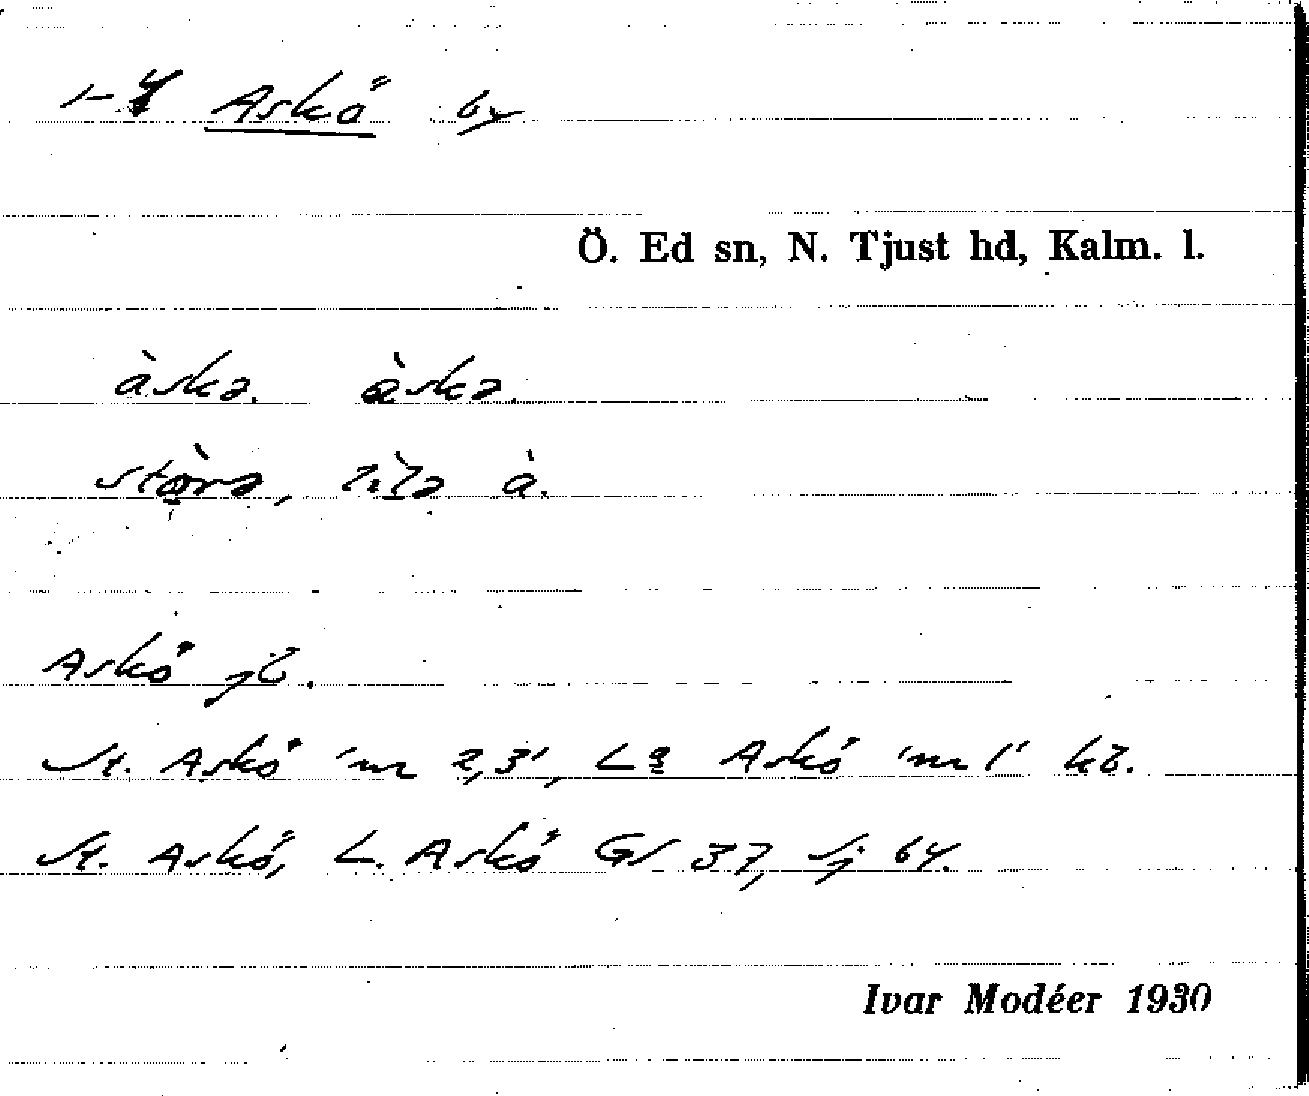 1-4 Askö by
Ö. Ed sn, N. Tjust hd, Kalm. l.
àskə. àskə.
stòrə, lìlə à.
Askö jb.
St. Askö 'nr 2,3', La Askö 'nr 1' kb.
St. Askö, L. Askö GS 37, Sj by.
Ivar Modéer 1930